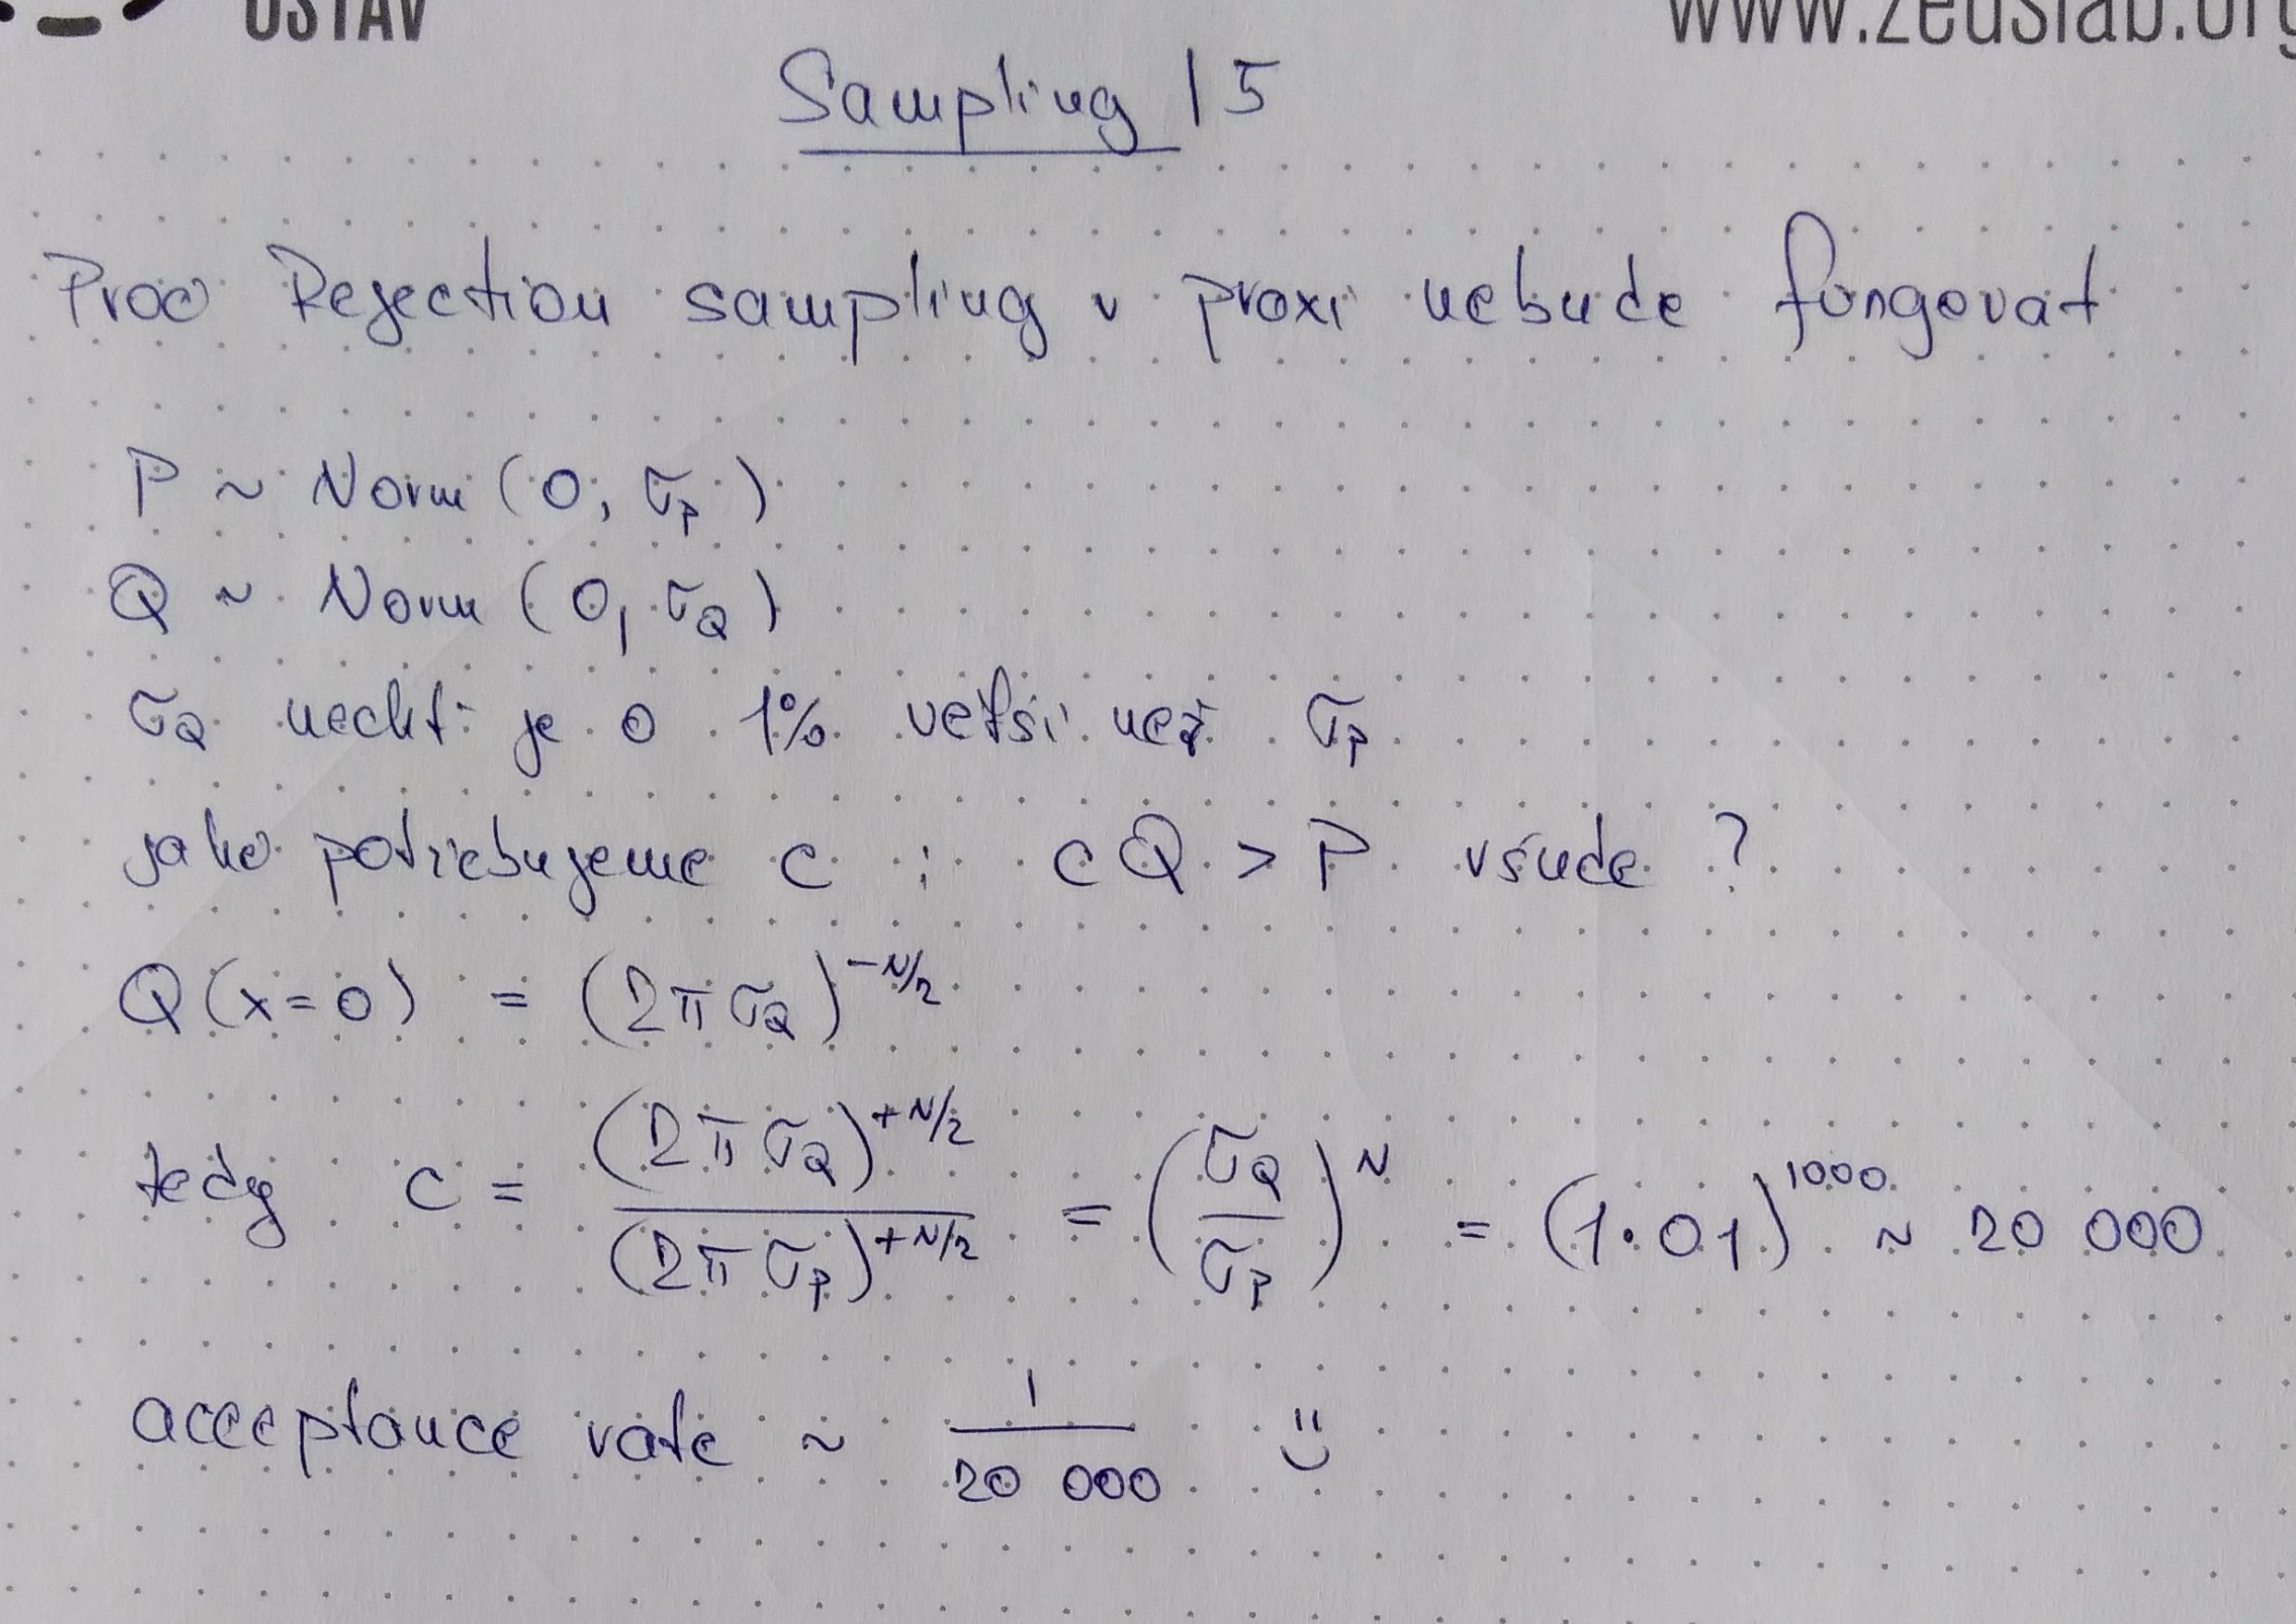 ÚSTAV
www.zeuslab.org
Sampling 15
Proč Rejection sampling v praxi nebude fungovat
P ~ Norm (0, σ_P)
Q ~ Norm (0, σ_Q)
σ_Q nechť je o 1% větší než σ_P
jaké potřebujeme c : cQ > P všude ?
Q(x=0) = (2πσ_Q)^{-N/2}
tedy c = (2πσ_Q)^{+N/2} / (2πσ_P)^{+N/2} = (σ_Q/σ_P)^N = (1.01)^{1000} ~ 20 000
acceptance rate ~ 1/20 000 ¨⌣